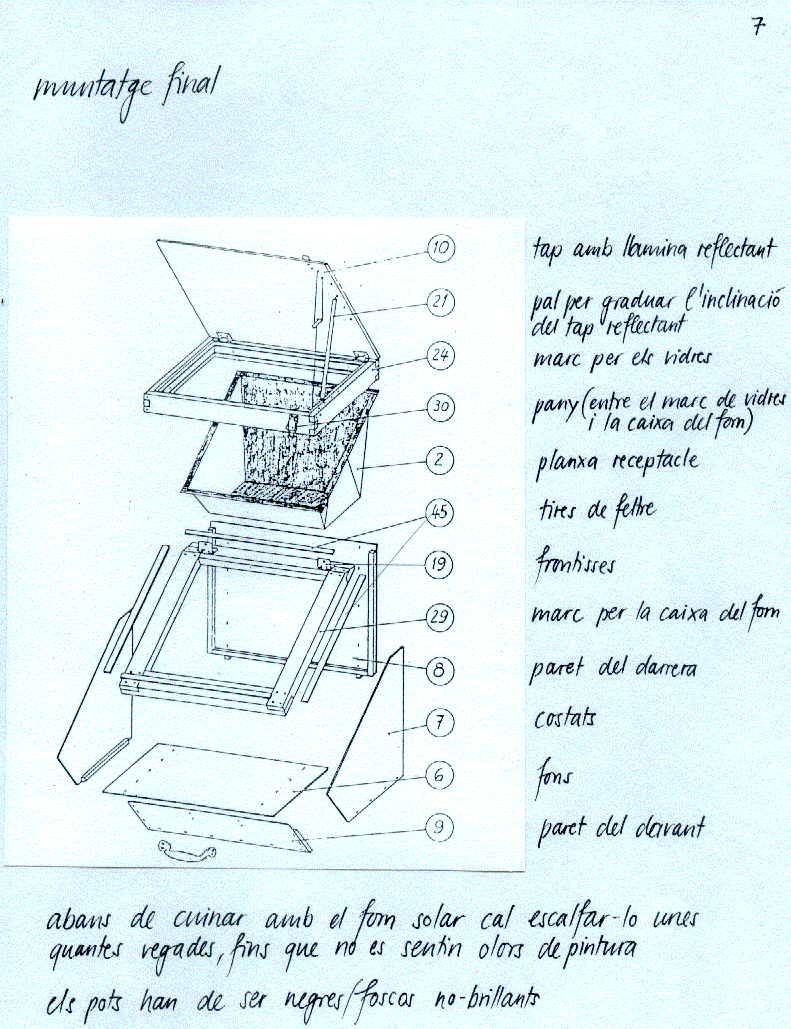 7
muntatge final
10 tap amb llamina reflectant
21 pal per graduar l'inclinació
del tap reflectant
24 marc per els vidres
30 pany (entre el marc de vidres
i la caixa del forn)
2 planxa receptacle
45 tires de feltre
19 frontisses
29 marc per la caixa del forn
8 paret del darrera
7 costats
6 fons
9 paret del davant
abans de cuinar amb el forn solar cal escalfar-lo unes
quantes vegades, fins que no es sentin olors de pintura
els pots han de ser negres/foscos no-brillants